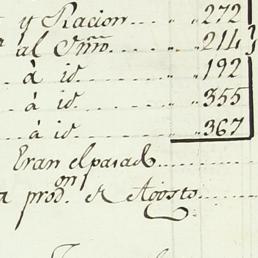 y Racion.. .. .. 272
al Sñro... .. .. 214
à id... .. .. 192
à id... .. .. 355
à id... .. .. 367
Eran el pasado
a prod.on de Agosto